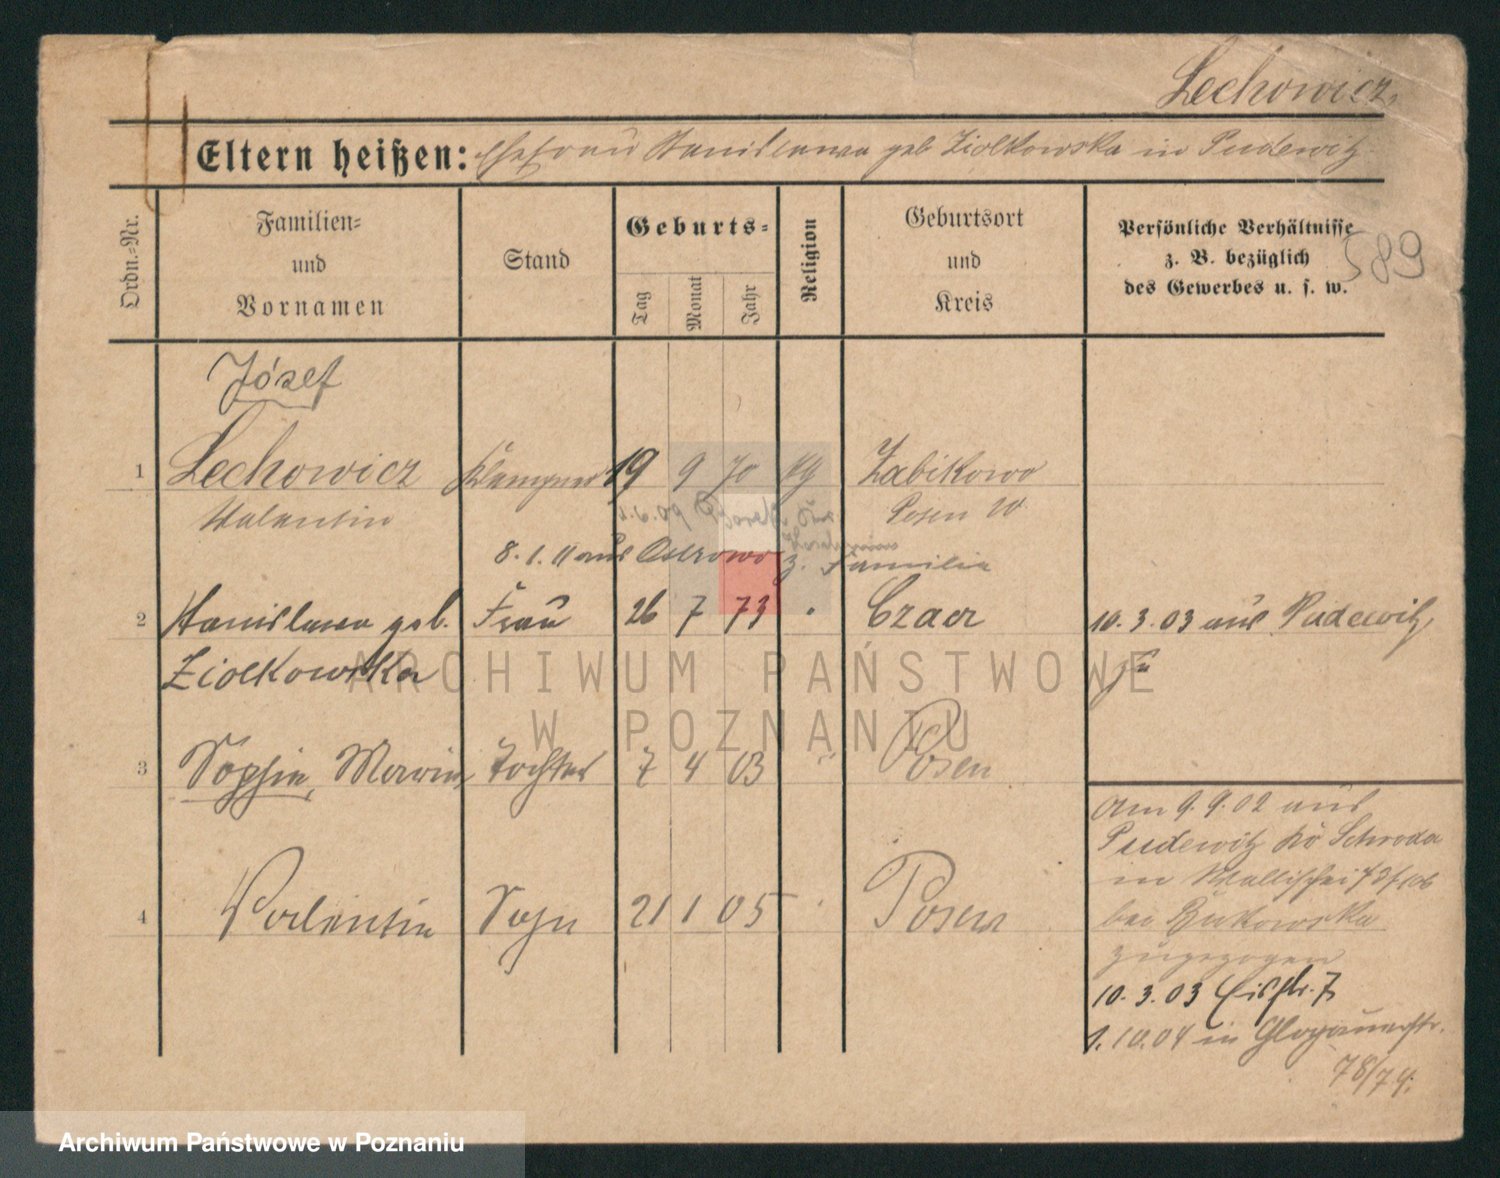 Lechowicz,
Eltern heißen: Ehefrau Stanislawa geb Ziolkowska in Pudewitz
Ordn.-Nr.
Familien-
und
Vornamen
Stand
Geburts-
Tag
Monat
Jahr
Religion
Geburtsort
und
Kreis
Persönliche Verhältnisse
z. B. bezüglich
des Gewerbes u. s. w.
589
Józef
1 Lechowicz Klempner 19 9 70 Zabikowo
Valentin Posen W
8. 1. 11 aus Ostrowo z. Familie
2 Stanislawa geb. Frau 26 7 73 " Czacz 10. 3. 03 aus Pudewitz
Ziolkowska zu
3 Sophie, Marie, Tochter 7 4 03 " Posen
4 Valentin Sohn 21 1 05 " Posen
Am 9. 9. 02 aus
Pudewitz Kr Schroda
in Wallischei
bei
zugezogen
10. 3. 03 7
1. 10. 04 in Glogauerstr.
78/74.
ARCHIWUM PAŃSTWOWE
W POZNANIU
Archiwum Państwowe w Poznaniu